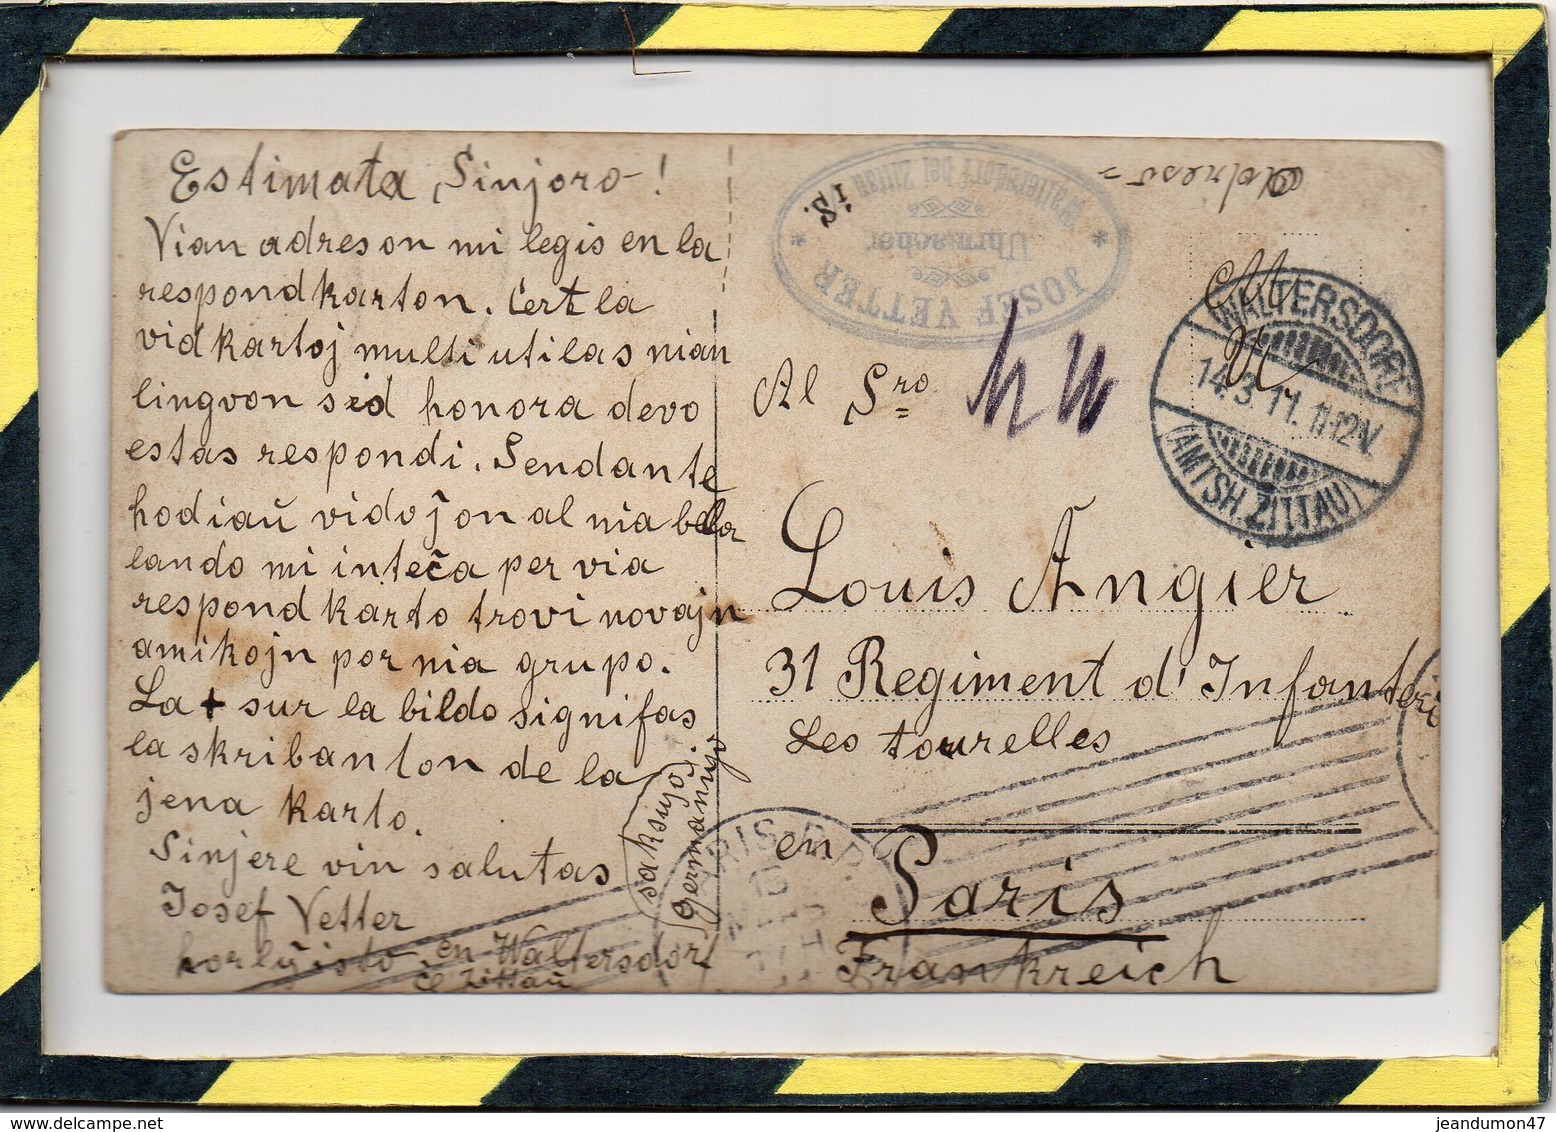 Estimata Sinjoro!
Vian adreson mi legis en la
respondkarton. Ĉert la
vidkartoj multi utilas nian
lingvon sed honora devo
estas respondi. Sendante
hodiaŭ vidojon al nia bela
lando mi inteĉa per via
respondkarto trovi novajn
amikojn por nia grupo.
La + sur la bildo signifas
la skribanton de la
jena karto.
Sinjere vin salutas
Josef Vetter
horlŭisto en Waltersdorf
ĉe Zittaŭ
saksujo
germanujo
Adreso =
JOSEF VETTER
Uhrmacher
Waltersdorf bei Zittau
i/S.
WALTERSDORF
14.3.11. 11-12V.
(AMTSH. ZITTAU)
Al Sro
Louis Angier
31 Regiment d'Infanteri
Les tourelles
en Paris
Frankreich
PARIS R.P.
15
jeandumon47